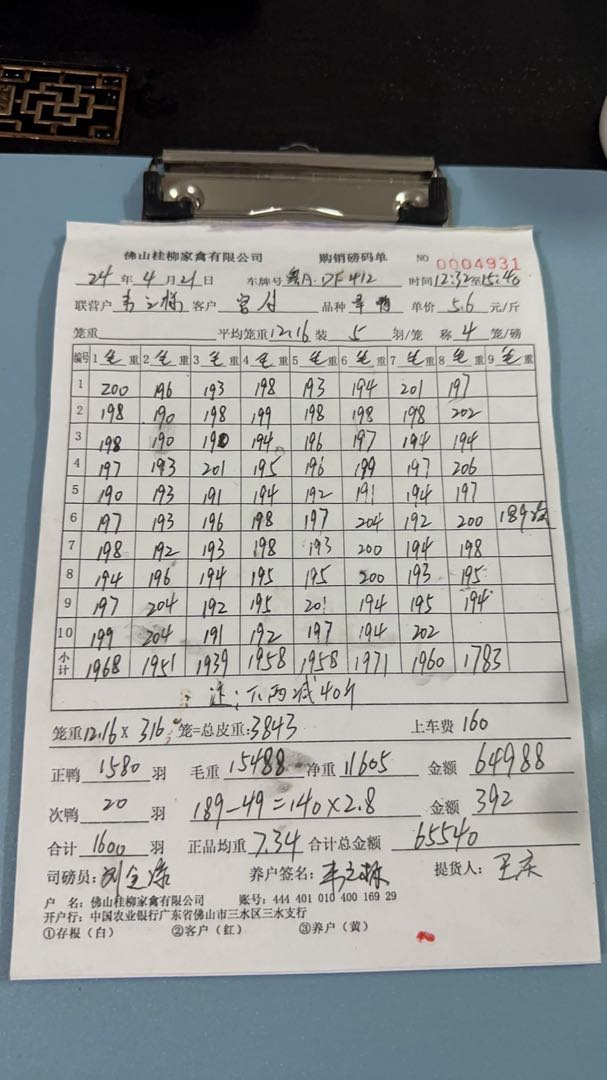 佛山桂柳家禽有限公司 购销磅码单 NO 0004931
24年4月21日 车牌号粤A·DF412 时间12:32至15:40
联营户韦立栋 客户 品种 单价5.6元/斤
笼重 平均笼重12.16装5羽/笼 称4笼/磅
编号 1毛重 2毛重 3毛重 4毛重 5毛重 6毛重 7毛重 8毛重 9毛重
1 200 196 193 198 193 194 201 197
2 198 190 198 199 198 198 198 202
3 198 190 190 194 196 197 194 194
4 197 193 201 195 196 199 197 206
5 190 193 191 194 192 191 194 197
6 197 193 196 198 197 204 192 200 189次
7 198 192 193 198 193 200 194 198
8 194 196 194 195 195 200 193 195
9 197 204 192 195 201 194 195 194
10 199 204 191 192 197 194 202
小计 1968 1951 1939 1958 1958 1971 1960 1783
注:下雨减40斤
笼重12.16×316笼=总皮重:3843 上车费160
正鸭1580羽 毛重15488净重11605 金额64988
次鸭20羽 189-49=140×2.8 金额392
合计1600羽 正品均重7.34合计总金额65540
司磅员: 养户签名:韦立栋 提货人:
户 名:佛山桂柳家禽有限公司 账号:444 401 010 400 169 29
开户行:中国农业银行广东省佛山市三水区三水支行
①存根(白) ②客户(红) ③养户(黄)